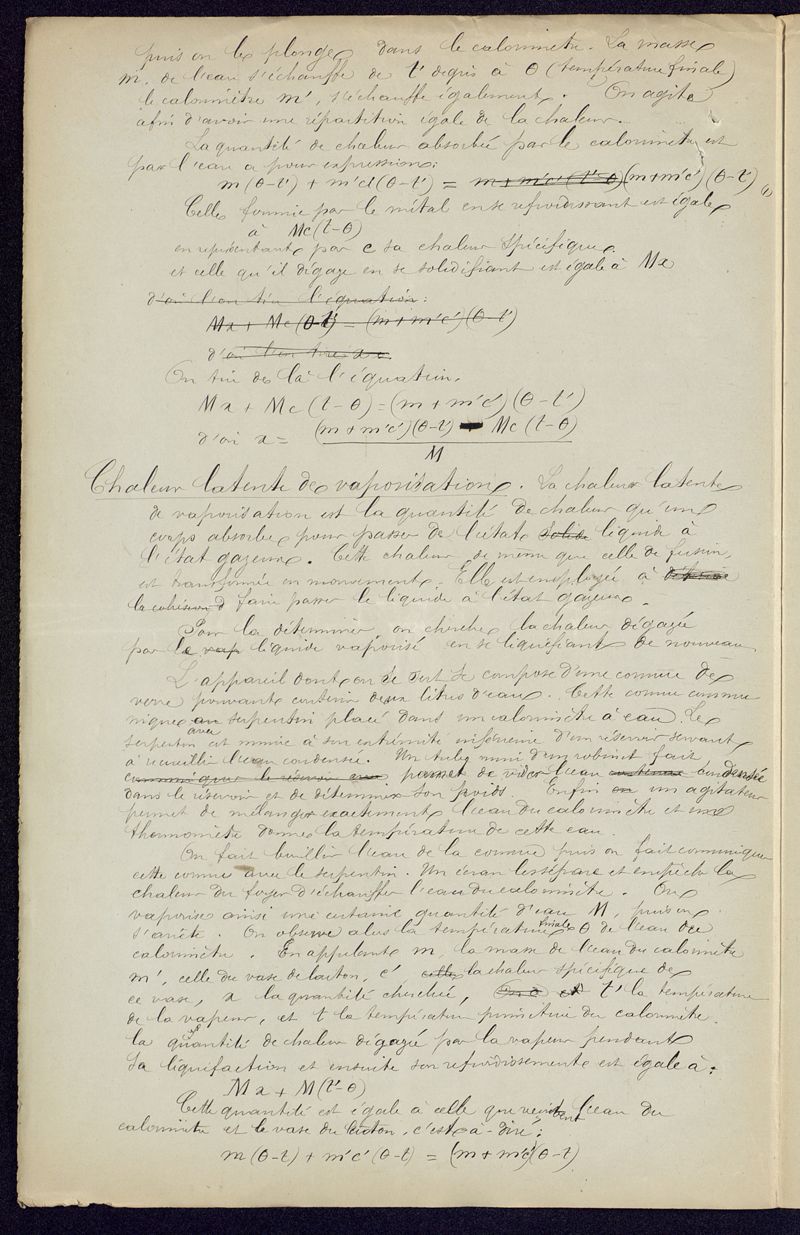 puis on les plonge dans le calorimètre. La masse
m, de l'eau s'échauffe de t' degrés à θ (température finale)
le calorimètre m', s'échauffe également. On agite
afin d'avoir une répartition égale de la chaleur.
La quantité de chaleur absorbée par le calorimètre et
par l'eau a pour expression:
m(θ-t') + m'c'(θ-t') = m+m'c'(t'-θ) (m+m'c')(θ-t') (1)
Celle fournie par le métal en se refroidissant est égale
à Mc(t-θ)
en représentant par c sa chaleur spécifique.
et celle qu'il dégage en se solidifiant est égale à Mx
d'où l'on tire l'équation:
Mx + Mc(θ-t') = (m+m'c')(θ-t')
d'où l'on tire x =
On tire de là l'équation.
Mx + Mc(t-θ) = (m+m'c')(θ-t')
d'où x = (m+m'c')(θ-t') - Mc(t-θ)
M
Chaleur latente de vaporisation. La chaleur latente
de vaporisation est la quantité de chaleur qu'un
corps absorbe pour passer de l'état solide liquide à
l'état gazeux. Cette chaleur, de même que celle de fusion,
est transformée en mouvement. Elle est employée à détruire
la cohésion d faire passer le liquide à l'état gazeux.
Pour la déterminer on cherche la chaleur dégagée
par le vap liquide vaporisé en se liquéfiant de nouveau.
L'appareil dont on se sert se compose d'une cornue de
verre pouvant contenir deux litres d'eau. Cette cornue commu
nique au serpentin placé dans un calorimètre à eau. Le
avec
serpentin est muni à son extrémité inférieure d'un réservoir servant
à recueillir l'eau condensée. Un tube muni d'un robinet fait
communiquer le réservoir avec permet de vider l'eau contenue condensée
dans le réservoir et de déterminer son poids. Enfin un agitateur
permet de mélanger exactement l'eau du calorimètre et un
thermomètre donne la température de cette eau.
On fait bouillir l'eau de la cornue puis on fait communiquer
cette cornue avec le serpentin. Un écran les sépare et empêche la
chaleur du foyer d'échauffer l'eau du calorimètre. On
vaporise ainsi une certaine quantité d'eau M, puis on
s'arrête. On observe alors la température finale θ de l'eau du
calorimètre. En appelant m, la masse de l'eau du calorimètre
m', celle du vase de laiton, c' celle la chaleur spécifique de
ce vase, x la quantité cherchée, t' la température
de la vapeur, et t la température primitive du calorimètre.
la quantité de chaleur dégagée par la vapeur pendant
sa liquéfaction et ensuite son refroidissement est égale à:
Mx + M(t'-θ)
Cette quantité est égale à celle que l'eau du
calorimètre et le vase de laiton, c'est-à-dire:
m(θ-t) + m'c'(θ-t) = (m+m'c')(θ-t)